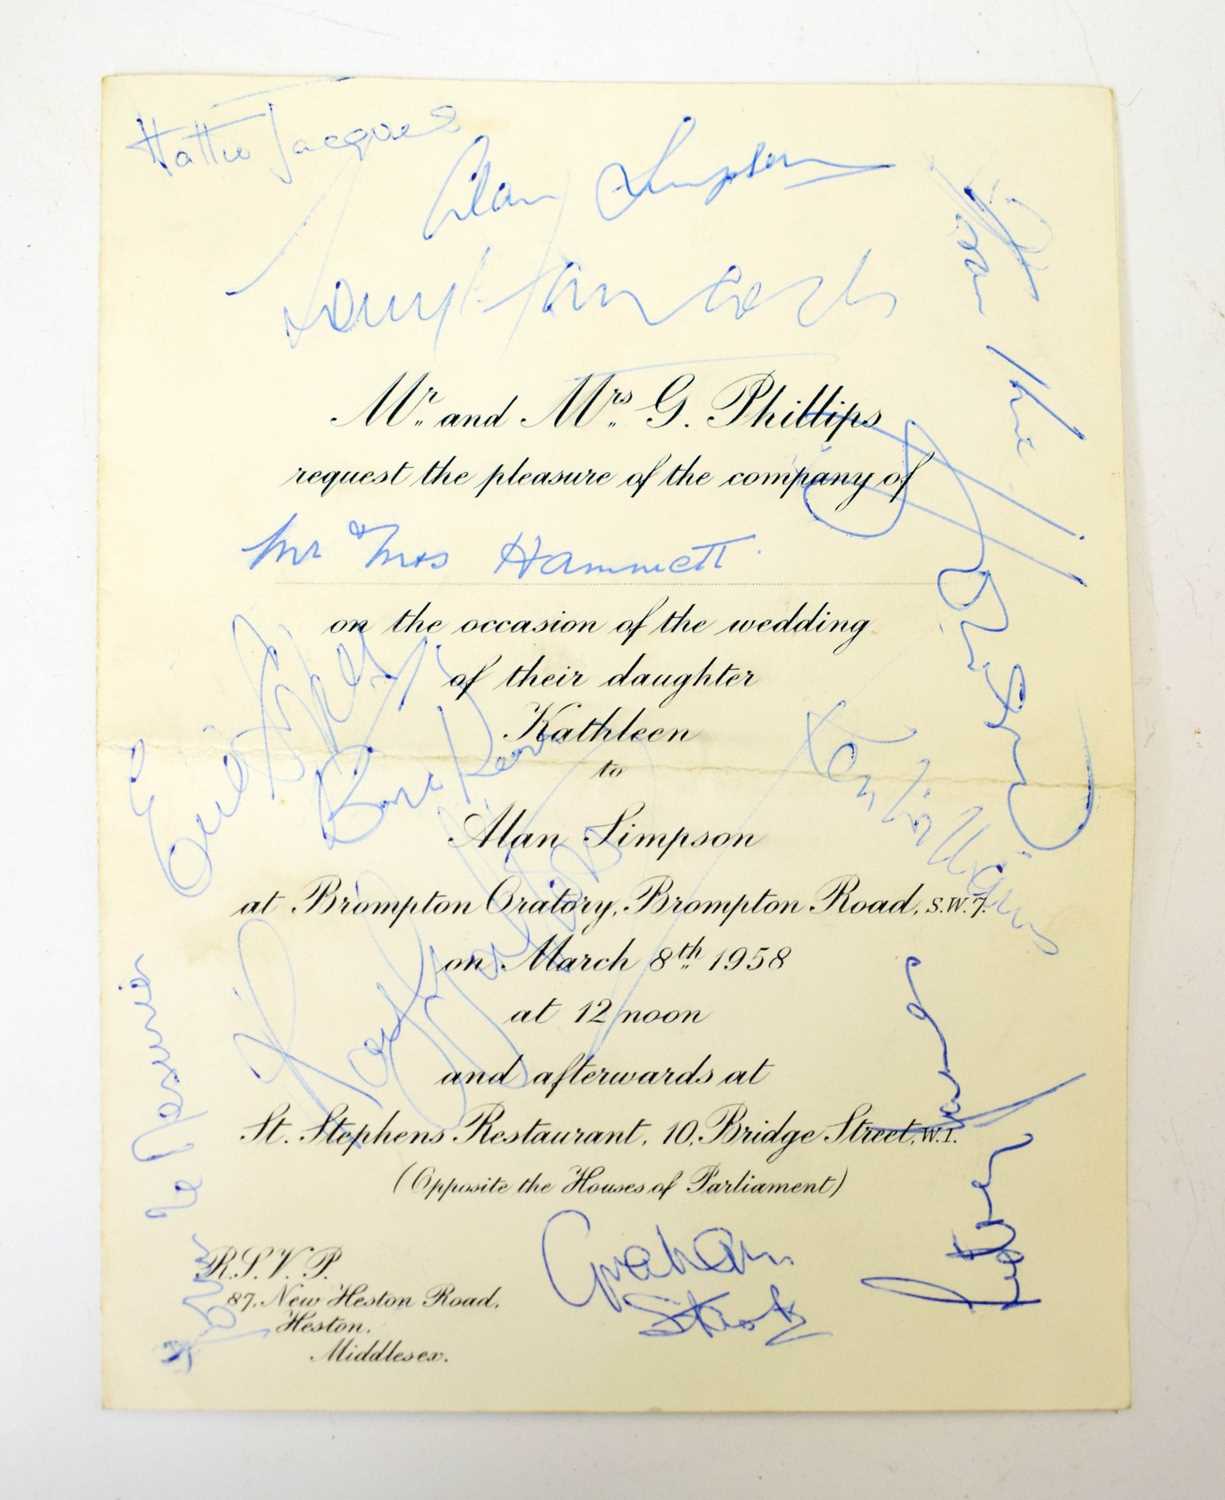 Hattie Jacques
Alan Simpson
Tony Hancock
Mr. and Mrs. G. Phillips
request the pleasure of the company of
Mr & Mrs Hammett
on the occasion of the wedding
of their daughter
Kathleen
to
Alan Simpson
at Brompton Oratory, Brompton Road, S.W.7.
on March 8th 1958
at 12 noon
and afterwards at
St. Stephens Restaurant, 10, Bridge Street, W.1.
(Opposite the Houses of Parliament)
R.S.V.P.
87, New Heston Road,
Heston,
Middlesex.
Eric Sykes
Bill Kerr
Ray Galton
Ken Williams
John Le Mesurier
Graham
Stark